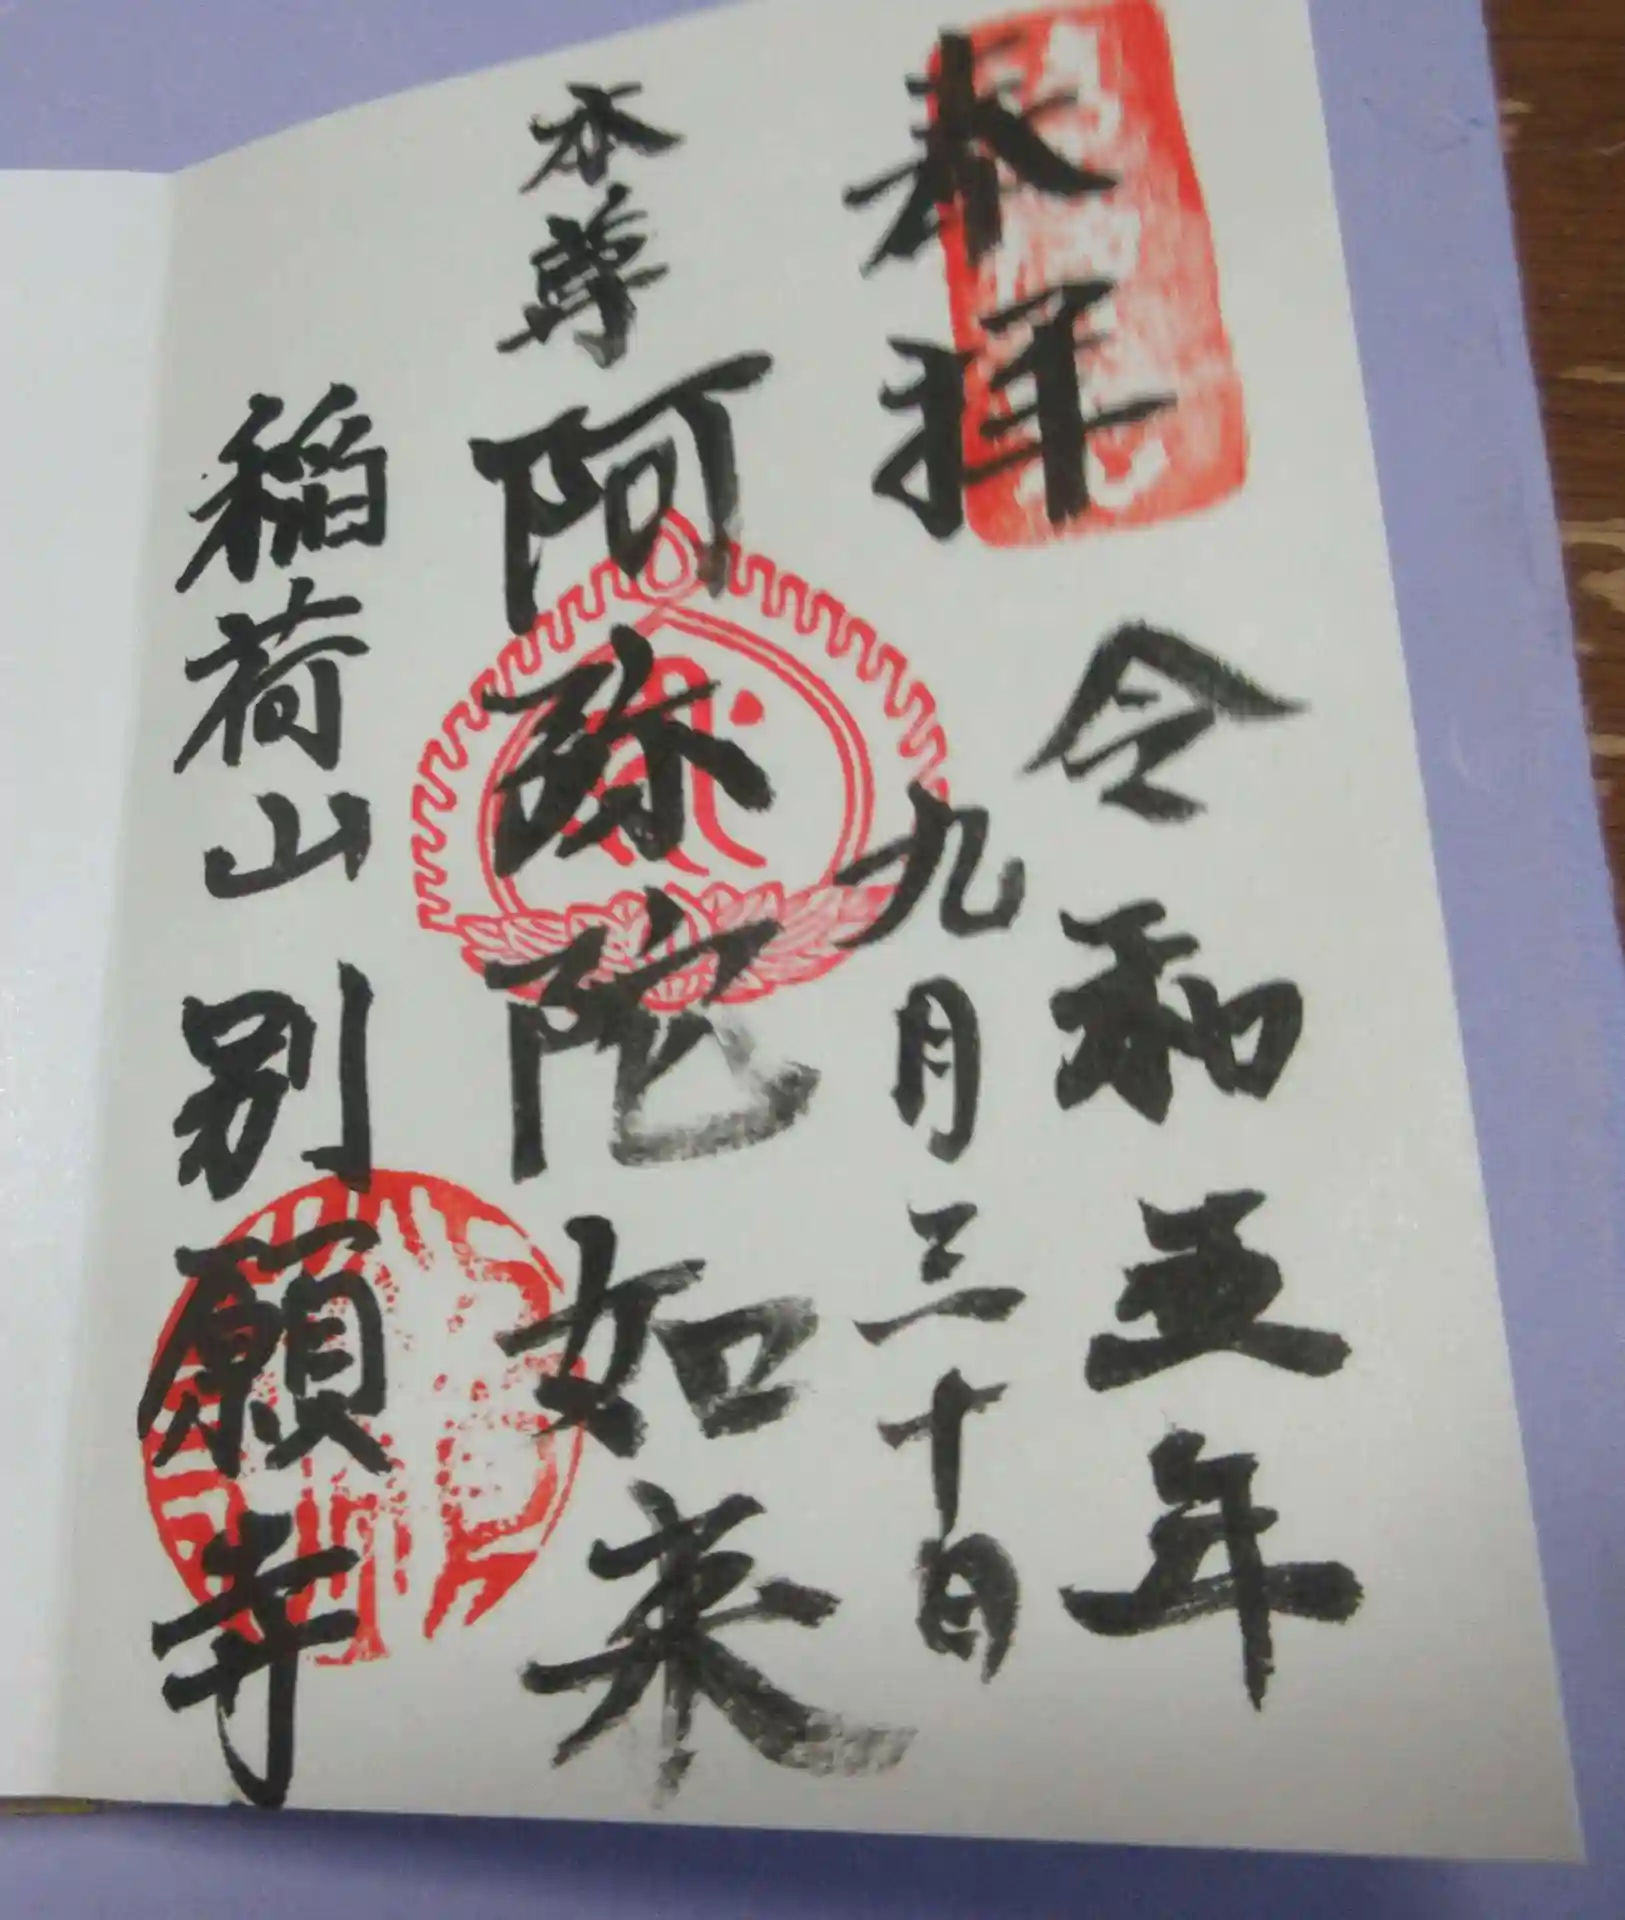 奉拝
令和五年
九月三十日
本尊 阿弥陀如来
稲荷山 別願寺